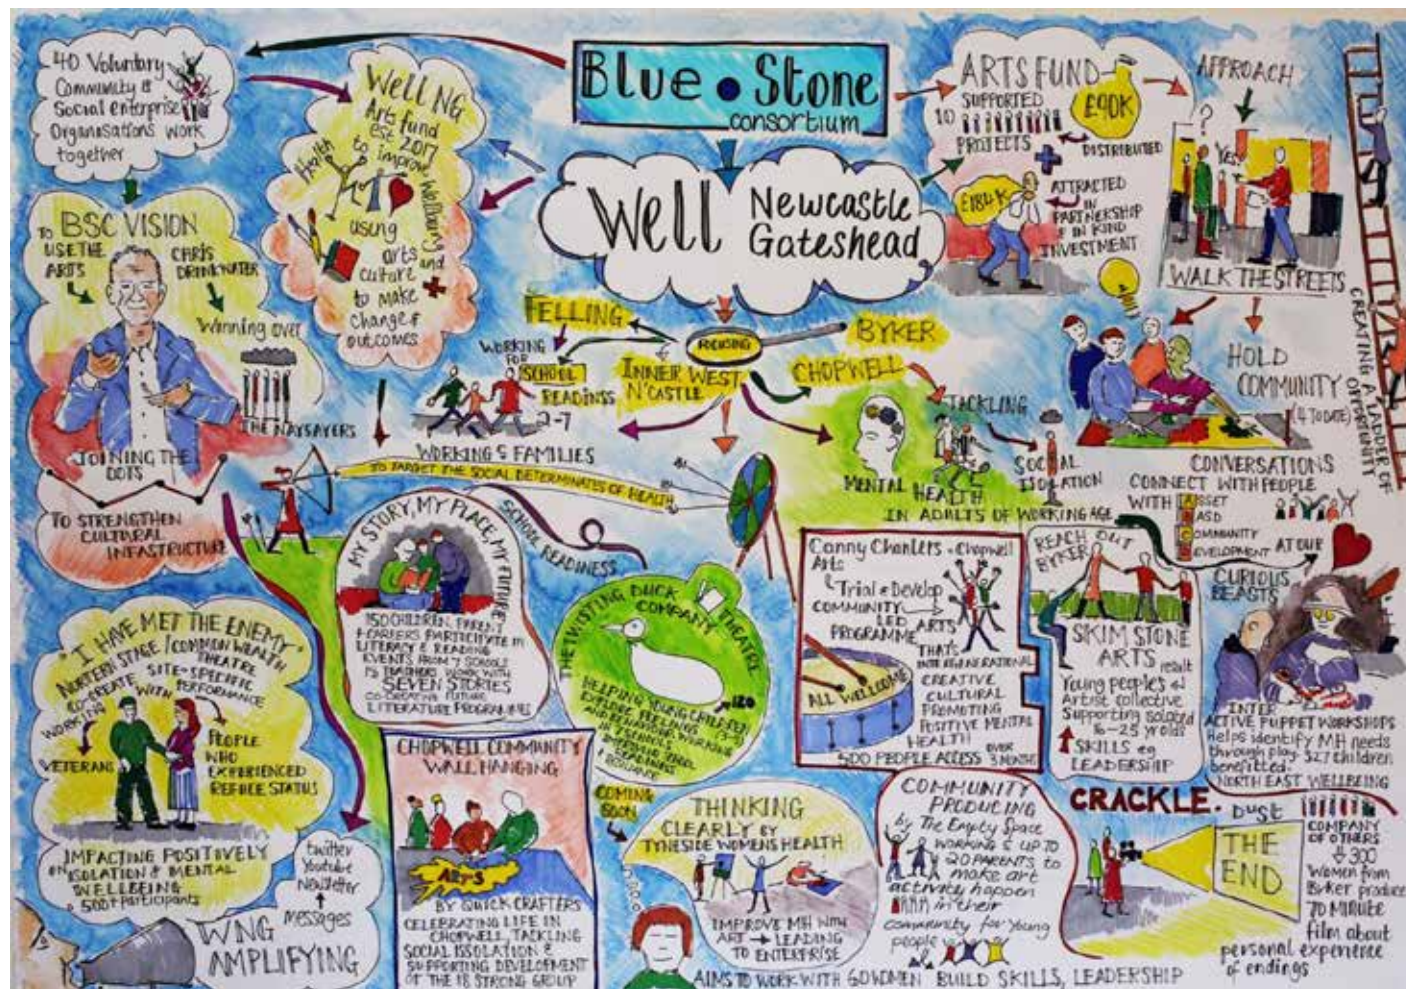 Blue Stone
consortium
Well
Newcastle
Gateshead
40 Voluntary
Community &
Social enterprise
Organisations work
together
Well NG
Arts fund
est 2017
to improve
Health
Wellbeing
and
using
arts
culture
to make
change &
outcomes
BSC VISION
TO
USE THE
ARTS
CHRIS
DRINKWATER
Winning over
THE NAYSAYERS
JOINING THE
DOTS
TO STRENGTHEN
CULTURAL
INFASTRUCTURE
ARTS FUND
£90K
SUPPORTED
10
PROJECTS
DISTRIBUTED
£184K
ATTRACTED
IN
PARTNERSHIP
& IN KIND
INVESTMENT
APPROACH
?
YES!
WALK THE STREETS
HOLD
COMMUNITY
(4 TO DATE)
CONVERSATIONS
CONNECT WITH PEOPLE
WITH ASSET
BASD
COMMUNITY
DEVELOPMENT
AT OUR
CREATING A LADDER OF
OPPORTUNITY
FOCUSING
FELLING
BYKER
INNER WEST
N'CASTLE
CHOPWELL
WORKING
FOR
SCHOOL
READINSS
2-7
WORKING & FAMILIES
TO TARGET THE SOCIAL DETERMINATES OF HEALTH
TACKLING
SOCIAL
ISOLATION
MENTAL HEALTH
IN ADULTS OF WORKING AGE
MY STORY, MY PLACE, MY FUTURE
150 CHILDREN, PARENT
& CARERS PARTICIPATE in
LITERACY & READING
EVENTS FROM 7 SCHOOLS
15 TEACHERS WORK WITH
SEVEN STORIES
CO-CREATING FUTURE
LITERATURE PROGRAMMES
SCHOOL READINESS
THE TWISTING DUCK
COMPANY
THEATRE
120
HELPING YOUNG CHILDREN
EXPLORE FEELINGS
Canny Chanters & Chopwell
Arts
Trial & Develop
COMMUNITY
LED ARTS
PROGRAMME
THAT'S
INTERGENERATIONAL
CREATIVE
CULTURAL
PROMOTING
POSITIVE MENTAL
HEALTH
ALL WELCOME
500 PEOPLE ACCESS OVER
3 MONTHS
REACH OUT
BYKER
SKIM STONE
ARTS result
Young peoples
Artist collective
Supporting isolated
16-25 yr olds
SKILLS eg
LEADERSHIP
CURIOUS
BEASTS
INTER
ACTIVE PUPPET WORKSHOPS
Helps identify MH needs
through play. 327 children
benefitted.
NORTH EAST WELLBEING
"I HAVE MET THE ENEMY"
NORTERN STAGE / COMMON WEALTH
THEATRE
SITE-SPECIFIC
PERFORMANCE
CO-CREATE
WORKING WITH
VETERANS
PEOPLE
WHO
EXPERIENCED
REFUGE STATUS
IMPACTING POSITIVELY
ON ISOLATION & MENTAL
WELLBEING
500+ participants
twitter
Youtube
Newsletter
messages
WNG
AMPLIFYING
CHOPWELL COMMUNITY
WALL HANGING
ARTS
BY QUICK CRAFTERS
CELEBRATING LIFE IN
CHOPWELL, TACKLING
SOCIAL ISSOLATION &
SUPPORTING DEVELOPMENT
OF THE 18 STRONG GROUP
COMING
SOON
THINKING
CLEARLY BY
TYNESIDE WOMENS HEALTH
IMPROVE MH WITH
ART LEADING
TO ENTERPRISE
AIMS TO WORK WITH 60 WOMEN BUILD SKILLS, LEADERSHIP
COMMUNITY
PRODUCING
by The Empty Space
WORKING & UP TO
20 PARENTS to
make art
activity happen
in their
community for young
people
CRACKLE.
DUST
THE
END
COMPANY
OF OTHERS
300
Women from
Byker produce
70 MINUTE
film about
personal experience
of endings